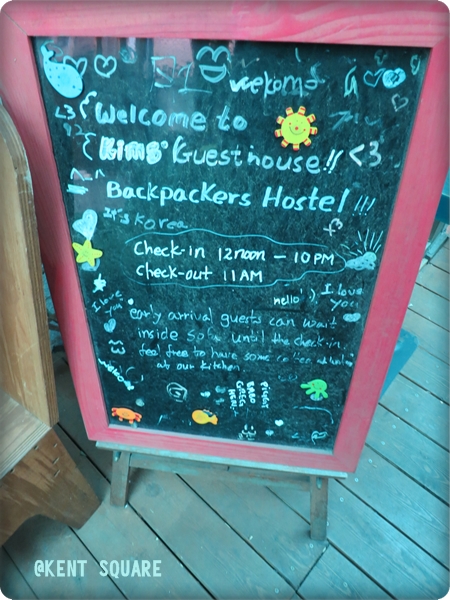 Welcome to
<3
Kims' Guesthouse!! <3
Backpackers Hostel !!!
It's Korea
Check-in 12noon — 10PM
check-out 11AM
hello :)
I love
you
I love
you
early arrival guests can wait
inside sofa until the check-in.
feel free to have some coffee
at our kitchen
@KENT SQUARE